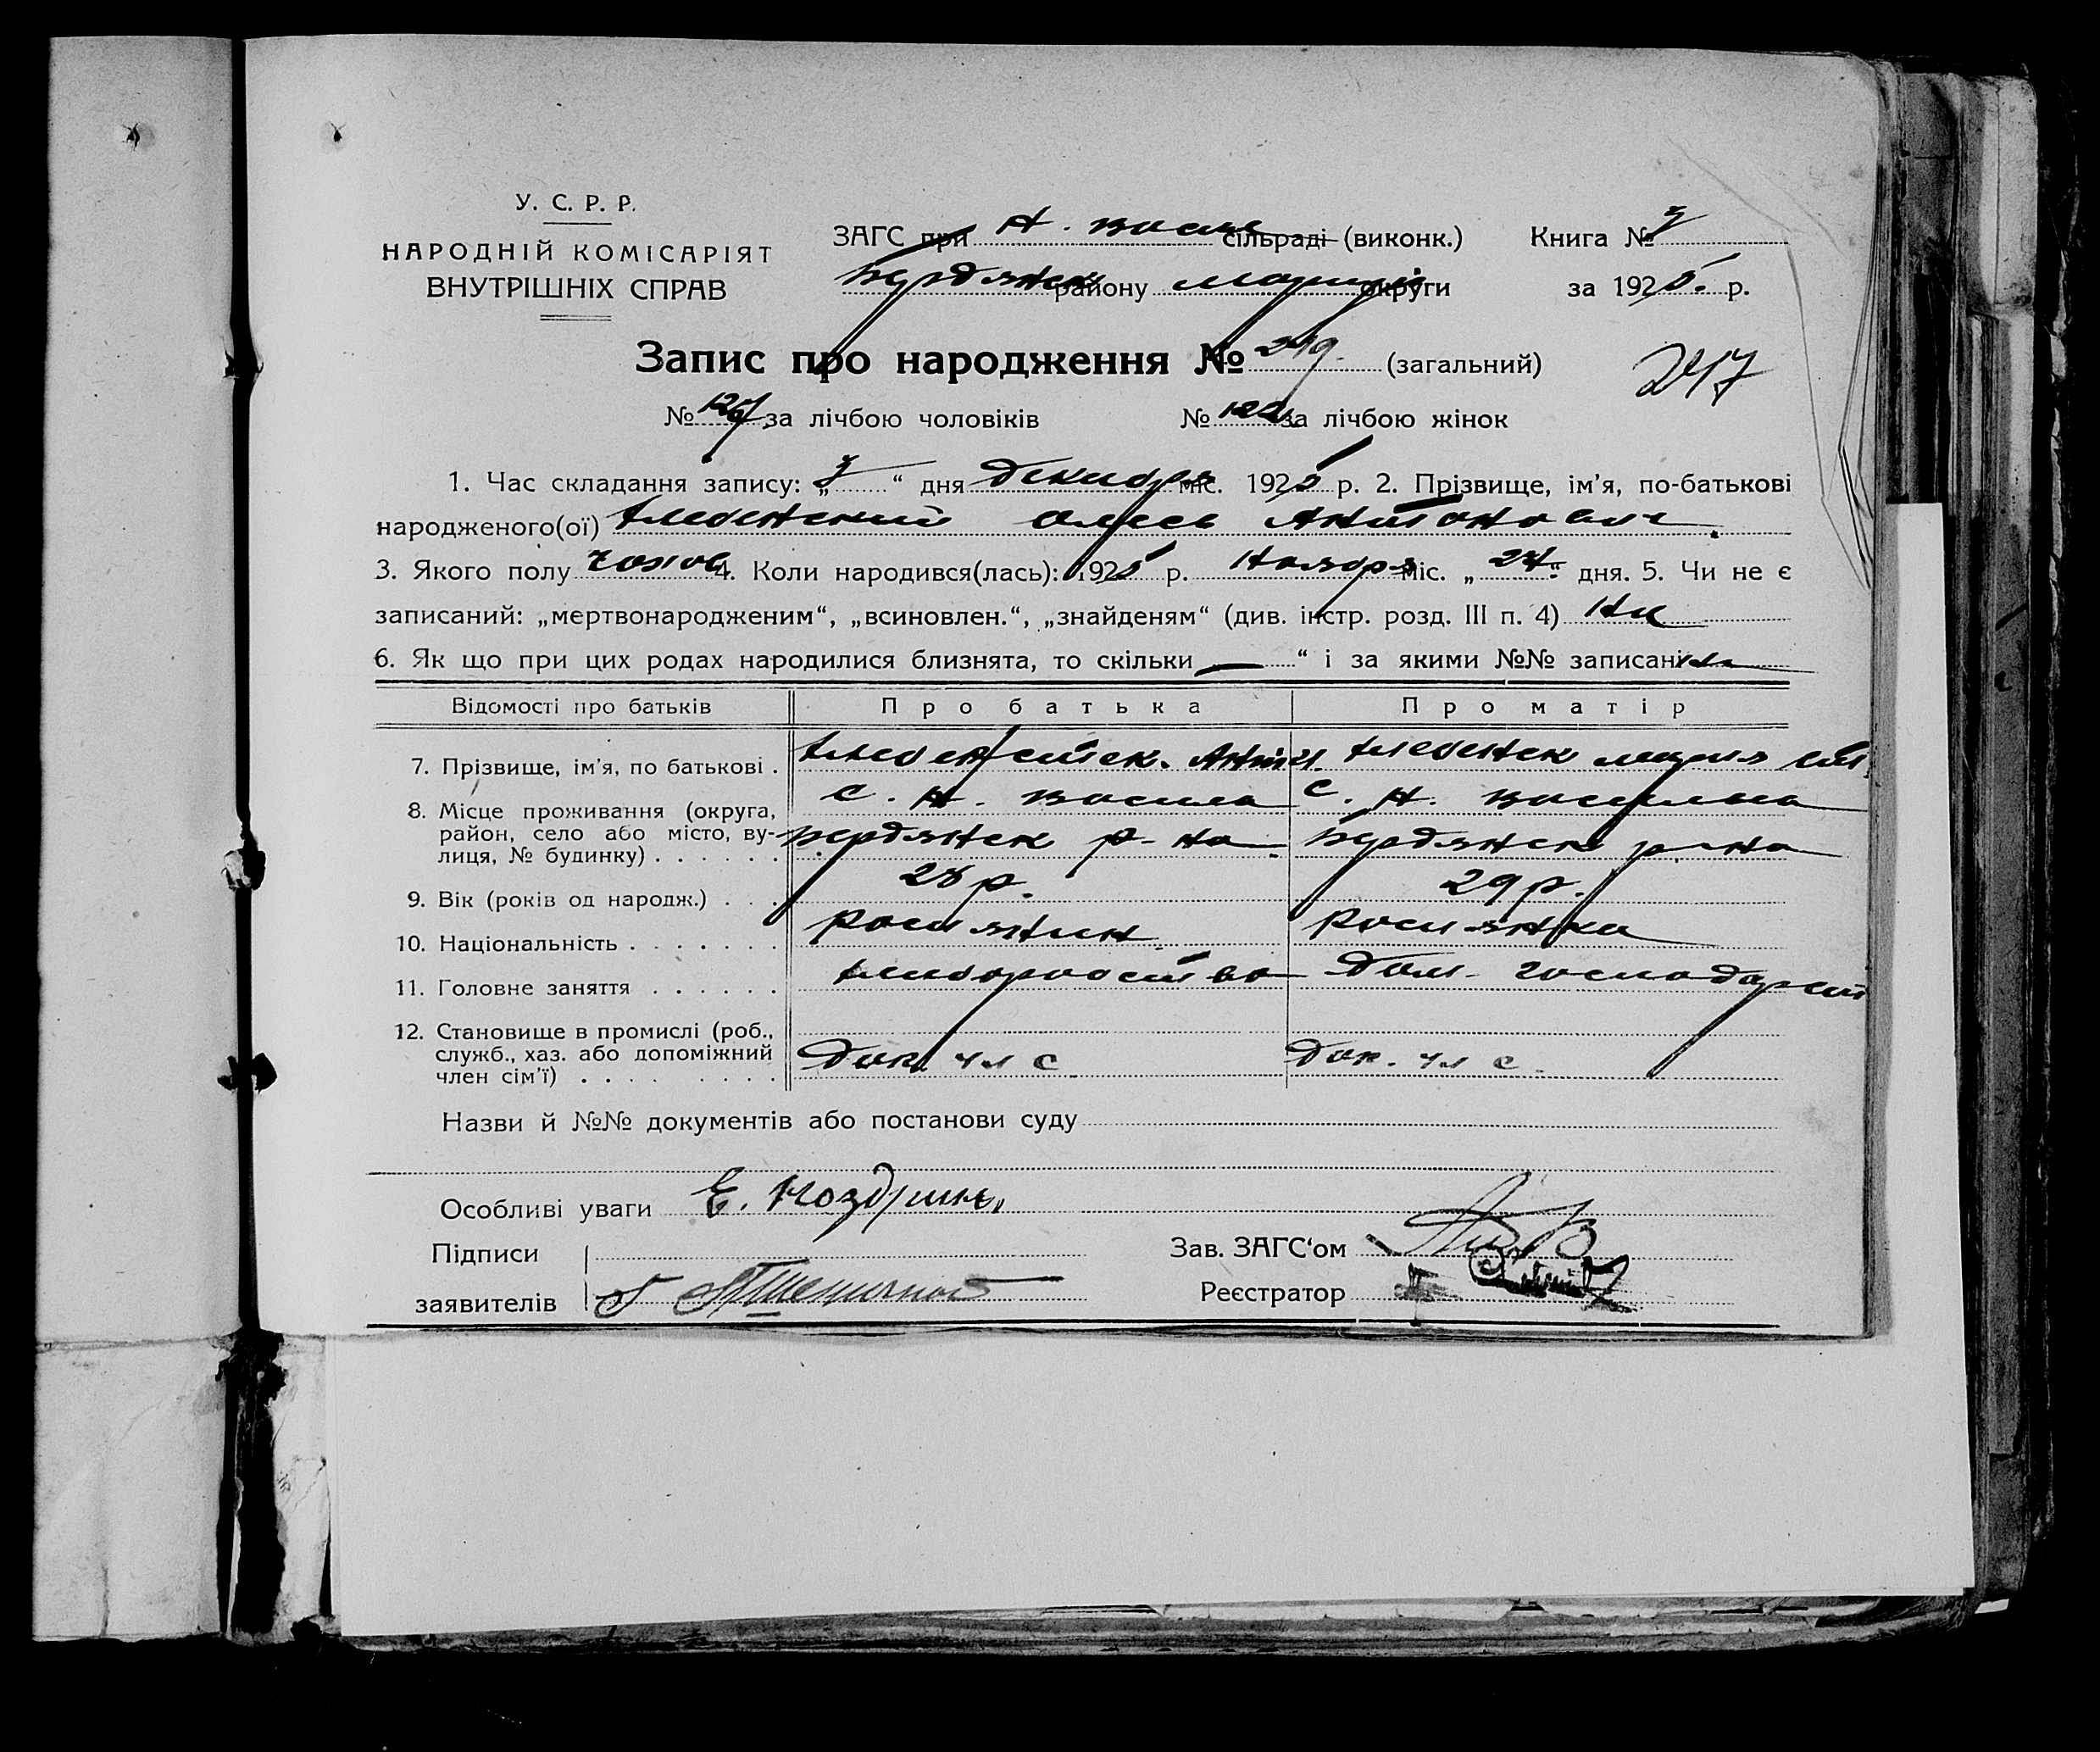 У. С. Р. Р.
НАРОДНІЙ КОМІСАРІЯТ
ВНУТРІШНІХ СПРАВ
ЗАГС при Н. васил сільраді (виконк.)
Книга № 3
Бердянск району Мариуп округи
за 1925. р.
Запис про народження № 249. (загальний)
247
№ 127 за лічбою чоловіків
№ 122 за лічбою жінок
1. Час складання запису: „3“ дня декабря міс. 1925 р. 2. Прізвище, ім'я, по-батькові
народженого(ої) Антонович
3. Якого полу чолов 4. Коли народився(лась): 1925 р. Ноября міс. „24“ дня. 5. Чи не є
записаний: „мертвонародженим“, „всиновлен.“, „знайденям“ (див. інстр. розд. III п. 4) Ні
6. Як що при цих родах народилися близнята, то скільки — “ і за якими №№ записані
Відомості про батьків
Про батька
Про матір
7. Прізвище, ім'я, по батькові .
8. Місце проживання (округа, район, село або місто, вулиця, № будинку) . . . . . .
с. Н. Васила
Бердянск р-на
с. Н. Васильва
Бердянск р-на
9. Вік (років од народж.) . . .
28 р.
29 р.
10. Національність . . . . . . .
росиянин
росиянка
11. Головне заняття . . . . . .
хлиборобство
дом. господарст
12. Становище в промислі (роб., служб., хаз. або допоміжний член сім'ї) . . . . . . . . .
доп. чл с
доп. чл с.
Назви й №№ документів або постанови суду
Особливі уваги Е. Ноздрин
Підписи
заявителів
Зав. ЗАГС'ом
Реєстратор